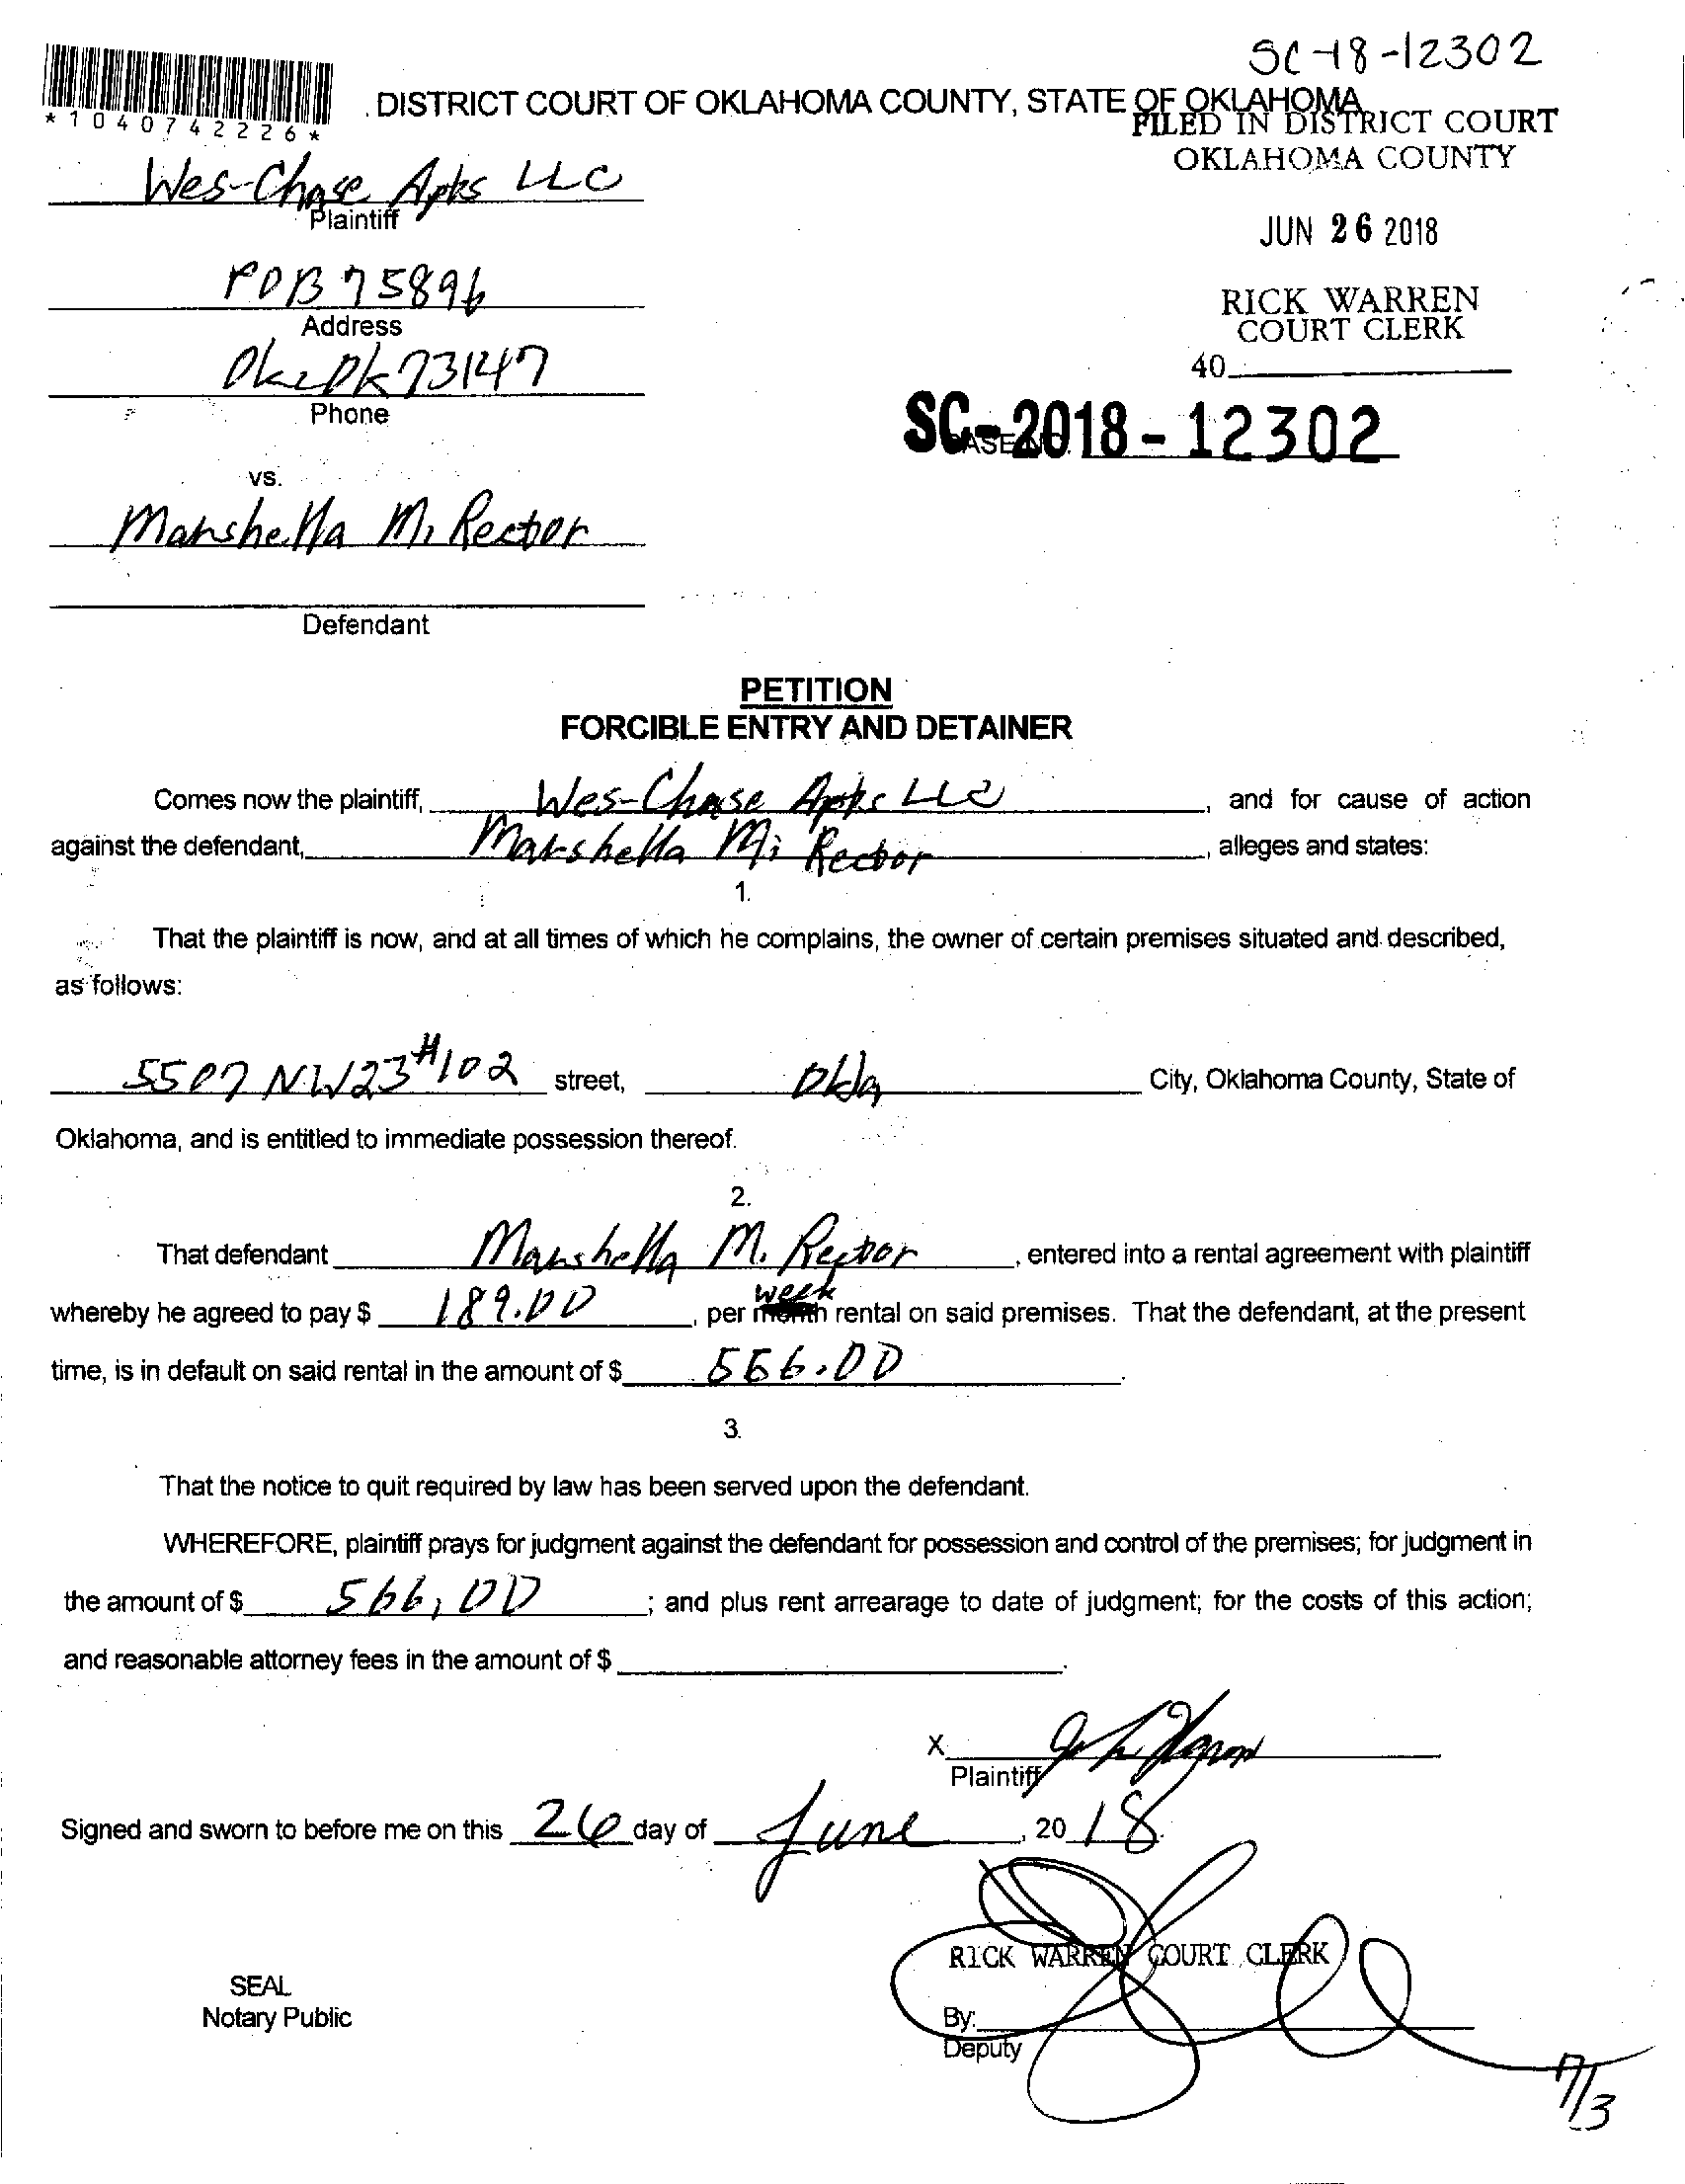 SC-18-12302
*1040742226*
DISTRICT COURT OF OKLAHOMA COUNTY, STATE OF OKLAHOMA
FILED IN DISTRICT COURT
OKLAHOMA COUNTY
Wes-Chase Apts LLC
Plaintiff
JUN 26 2018
POB 75896
Address
RICK WARREN
COURT CLERK
Okc Ok 73147
Phone
40
SC-2018-12302
CASE NO.
vs.
Marshella M. Rector
Defendant
PETITION
FORCIBLE ENTRY AND DETAINER
Comes now the plaintiff, Wes-Chase Apts LLC, and for cause of action
against the defendant, Marshella M. Rector, alleges and states:
1.
That the plaintiff is now, and at all times of which he complains, the owner of certain premises situated and described,
as follows:
5507 NW 23 #102 street, Okla City, Oklahoma County, State of
Oklahoma, and is entitled to immediate possession thereof.
2.
That defendant Marshella M. Rector, entered into a rental agreement with plaintiff
week
whereby he agreed to pay $ 189.00, per month rental on said premises. That the defendant, at the present
time, is in default on said rental in the amount of $ 566.00.
3.
That the notice to quit required by law has been served upon the defendant.
WHEREFORE, plaintiff prays for judgment against the defendant for possession and control of the premises; for judgment in
the amount of $ 566.00; and plus rent arrearage to date of judgment; for the costs of this action;
and reasonable attorney fees in the amount of $ .
X
Plaintiff
Signed and sworn to before me on this 26 day of June, 20 18.
RICK WARREN COURT CLERK
SEAL
Notary Public
By:
Deputy
7/3